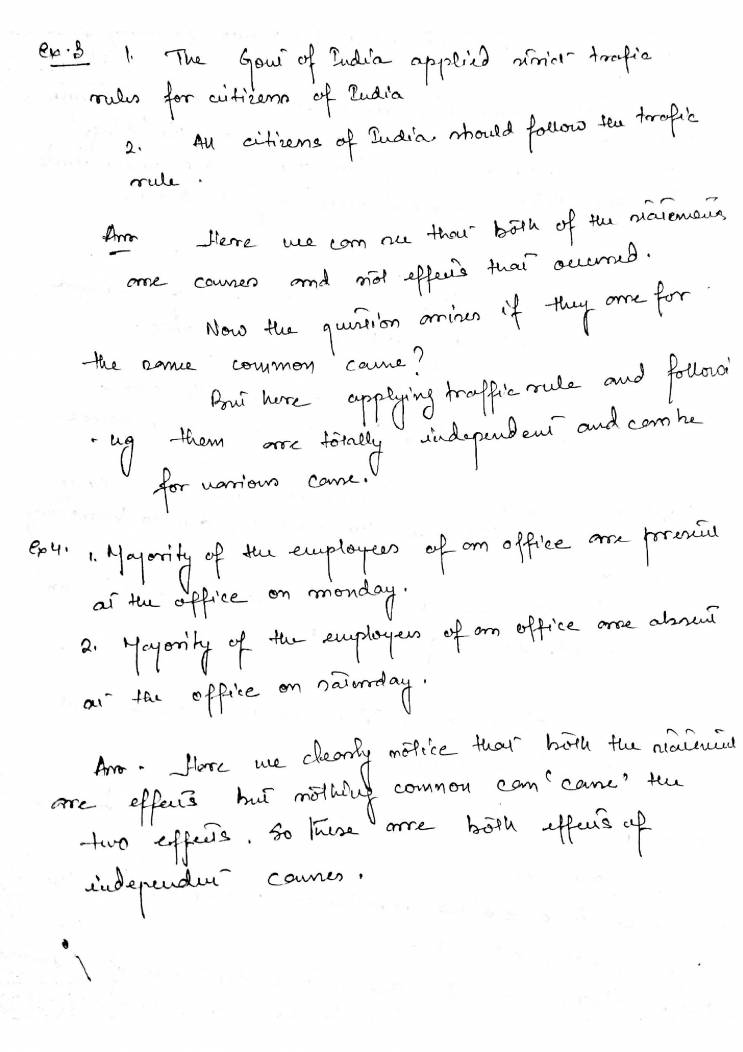 Ex.3 1. The Govt of India applied strict trafic
rules for citizens of India
2. All citizens of India should follow the trafic
rule.
Ans Here we can see that both of the statements
are causes and not effects that occurred.
Now the question arises if they are for
the same common cause?
But here applying traffic rule and followi
-ng them are totally independent and can be
for various cause.
Ex4. 1. Majority of the employees of an office are present
at the office on monday.
2. Majority of the employees of an office are absent
at the office on saturday.
Ans. Here we clearly notice that both the statement
are effects but nothing common can 'cause' the
two effects. So these are both effects of
independent causes.